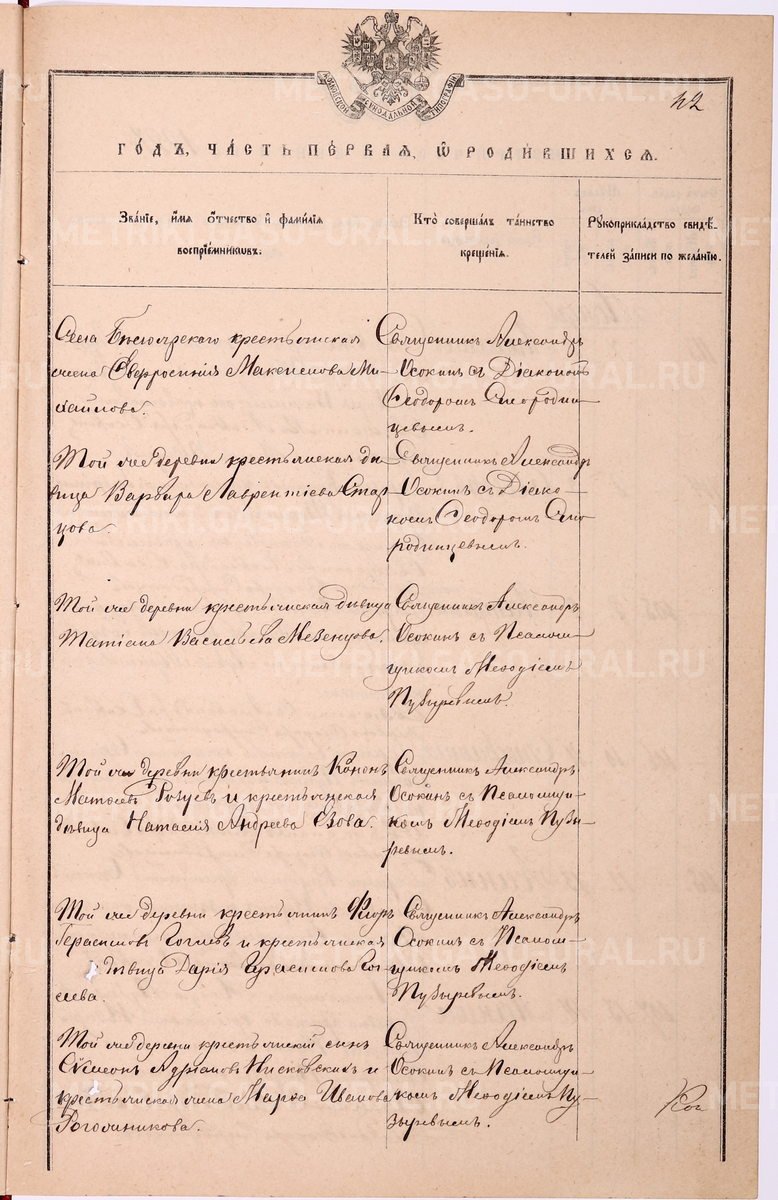 МОСКОВСКОЙ СѴНОДАЛЬНОЙ ТИПОГРАФІИ
42
ГОДЪ, ЧАСТЬ ПЕРВАЯ, Ѡ РОДИВШИХСЯ.
Званіе, имя отчество и фамилія
воспріемниковъ.
Кто совершалъ таинство
крещенія.
Рукоприкладство свидѣ-
телей записи по желанію.
Села крестьянская
жена Евфросинія Максимова Ми-
хайлова.
Священникъ Александръ
Осокинъ съ Діакономъ
Ѳеодоромъ Смородин-
цевымъ.
Той же деревни крестьянская дѣ-
вица Варвара Лаврентіева Стар-
цова.
Священникъ Александръ
Осокинъ съ Діако-
номъ Ѳеодоромъ Смо-
родинцевымъ.
Той же деревни крестьянская дѣвица
Татіана Васильева Мезенцова.
Священникъ Александръ
Осокинъ съ Псаломщи-
щикомъ Меѳодіемъ
Пузыревымъ.
Той же деревни крестьянинъ Кононъ
Матѳеевъ и крестьянская
дѣвица Наталія Андреева Езова.
Священникъ Александръ
Осокинъ съ Псаломщи-
комъ Меѳодіемъ Пузы-
ревымъ.
Той же деревни крестьянинъ Флоръ
Герасимовъ и крестьянская
дѣвица Дарія Герасимова
Священникъ Александръ
Осокинъ съ Псалом-
щикомъ Меѳодіемъ
Пузыревымъ.
Той же деревни крестьянскій сынъ
Сѵмеонъ Адріановъ и
крестьянская жена Марѳа Иванова
Рогожникова.
Священникъ Александръ
Осокинъ съ Псаломщи-
комъ Меѳодіемъ Пу-
зыревымъ.
METRIKI.GASO-URAL.RU